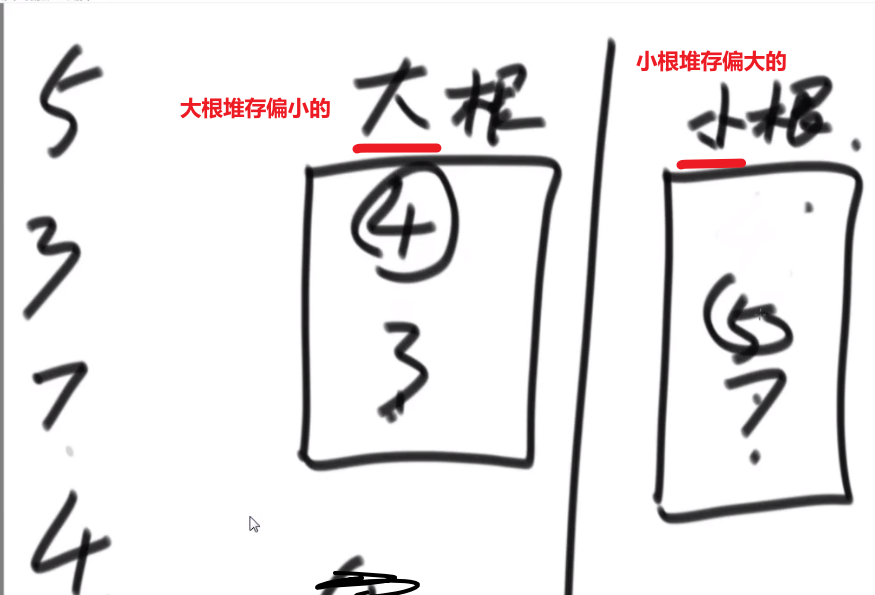 5
3
7
4
大根堆存偏小的
大根
4
3
小根堆存偏大的
小根
5
7